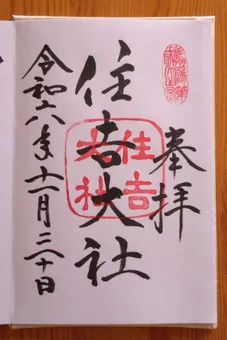 奉拝
住吉大社
令和六年十一月二十日
住吉
大社